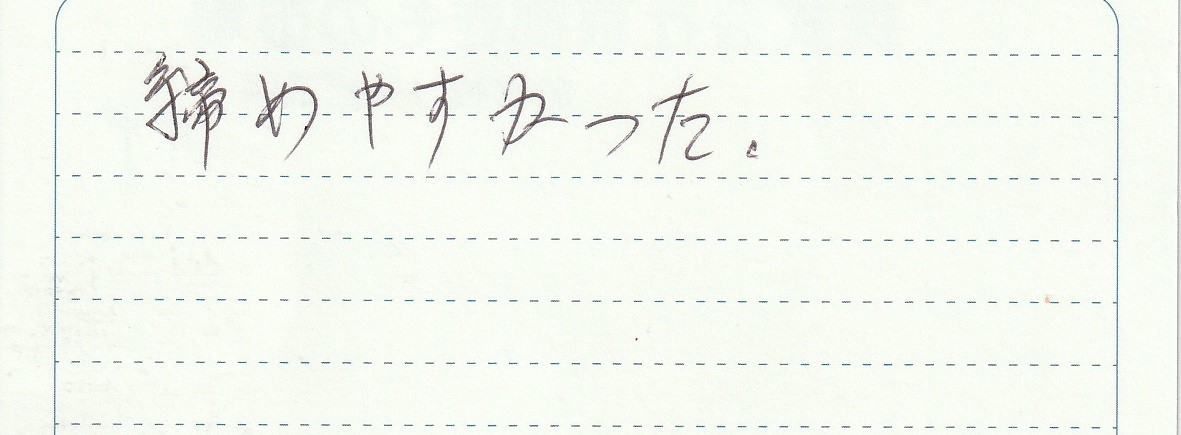 締めやすかった。